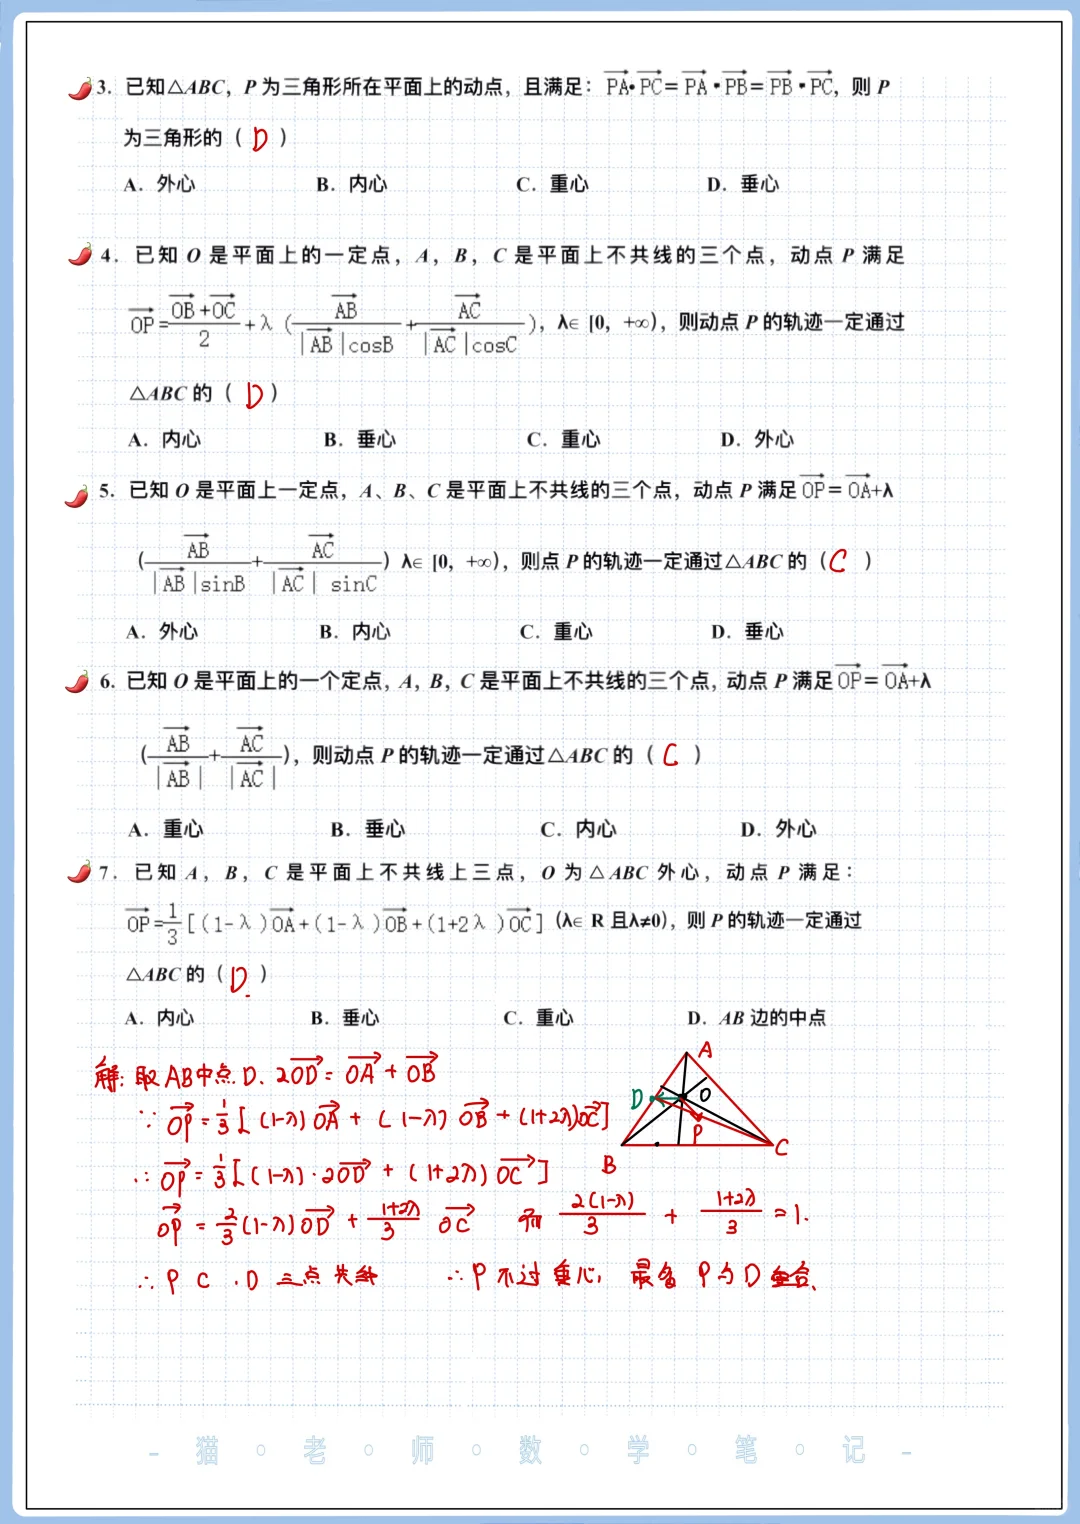 3. 已知△ABC，P为三角形所在平面上的动点，且满足：PA·PC=PA·PB=PB·PC，则P
为三角形的（ D ）
A. 外心 B. 内心 C. 重心 D. 垂心
4. 已知O是平面上的一定点，A，B，C是平面上不共线的三个点，动点P满足
OP=(OB+OC)/2+λ(AB/(|AB|cosB)+AC/(|AC|cosC))，λ∈[0，+∞)，则动点P的轨迹一定通过
△ABC的（ D ）
A. 内心 B. 垂心 C. 重心 D. 外心
5. 已知O是平面上一定点，A、B、C是平面上不共线的三个点，动点P满足OP=OA+λ
(AB/(|AB|sinB)+AC/(|AC|sinC)) λ∈[0，+∞)，则点P的轨迹一定通过△ABC的（ C ）
A. 外心 B. 内心 C. 重心 D. 垂心
6. 已知O是平面上的一个定点，A，B，C是平面上不共线的三个点，动点P满足OP=OA+λ
(AB/|AB|+AC/|AC|)，则动点P的轨迹一定通过△ABC的（ C ）
A. 重心 B. 垂心 C. 内心 D. 外心
7. 已知A，B，C是平面上不共线上三点，O为△ABC外心，动点P满足：
OP=1/3[(1-λ)OA+(1-λ)OB+(1+2λ)OC](λ∈R且λ≠0)，则P的轨迹一定通过
△ABC的（ D ）
A. 内心 B. 垂心 C. 重心 D. AB边的中点
解：取AB中点D、2OD=OA+OB
∵ OP=1/3[(1-λ)OA+(1-λ)OB+(1+2λ)OC]
∴ OP=1/3[(1-λ)·2OD+(1+2λ)OC]
OP=2/3(1-λ)OD+(1+2λ)/3 OC 而 2(1-λ)/3+(1+2λ)/3=1.
∴ P C . D 三点共线 ∴ P不过重心, 最多P与D重合.
A
D
O
P
B
C
- 猫·老·师·数·学·笔·记 -